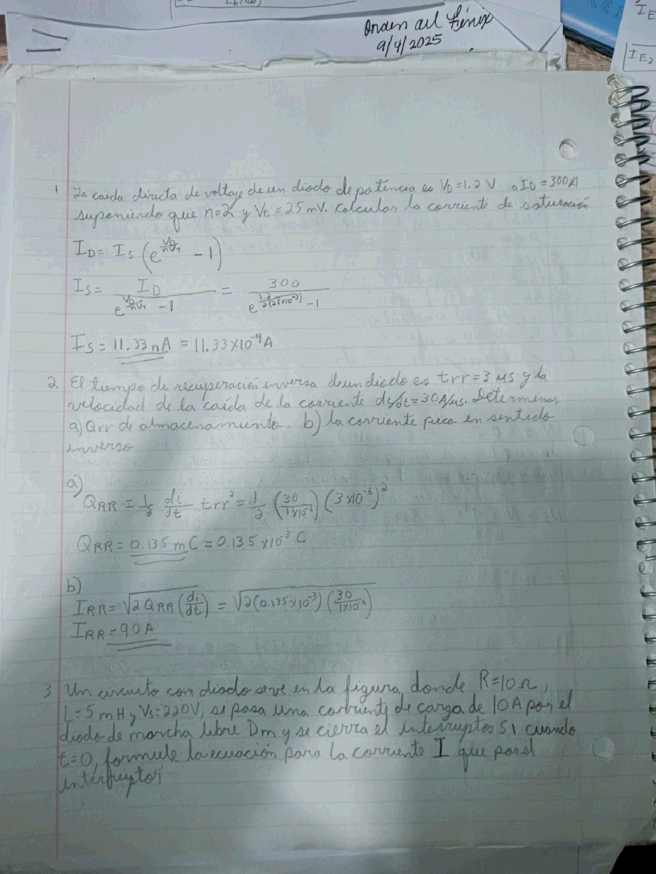 Orden del Fénix
9/4/2025
I E2
1 La caida directa de voltaje de un diodo de potencia es VD=1.2 V a ID=300A
suponiendo que n=2 y Vt=25 mV. calcular la corriente de saturación
ID = IS (e^(VD/nVT) - 1)
IS = ID / (e^(VD/nVT) - 1) = 300 / (e^(1.2/2(25x10^-3)) - 1)
IS = 11.33 nA = 11.33x10^-9 A
2 El tiempo de recuperación inversa de un diodo es trr=3 μs y la
velocidad de la caida de la corriente di/dt=30A/μs. Determinar
a) Qrr de almacenamiento. b) la corriente pico en sentido
inverso
a)
QRR = 1/2 di/dt trr² = 1/2 (30/1x10^-6) (3x10^-6)²
QRR = 0.135 mC = 0.135x10^-3 C
b)
IRR = √(2 QRR (di/dt)) = √(2(0.135x10^-3) (30/1x10^-6))
IRR = 90A
3 Un circuito con diodo se ve en la figura, donde R=10Ω,
L=5 mH y VS=220V, se pasa una corriente de carga de 10A por el
diodo de marcha libre Dm y se cierra el interruptor S1 cuando
t=0, formule la ecuación para la corriente I que por el
interruptor